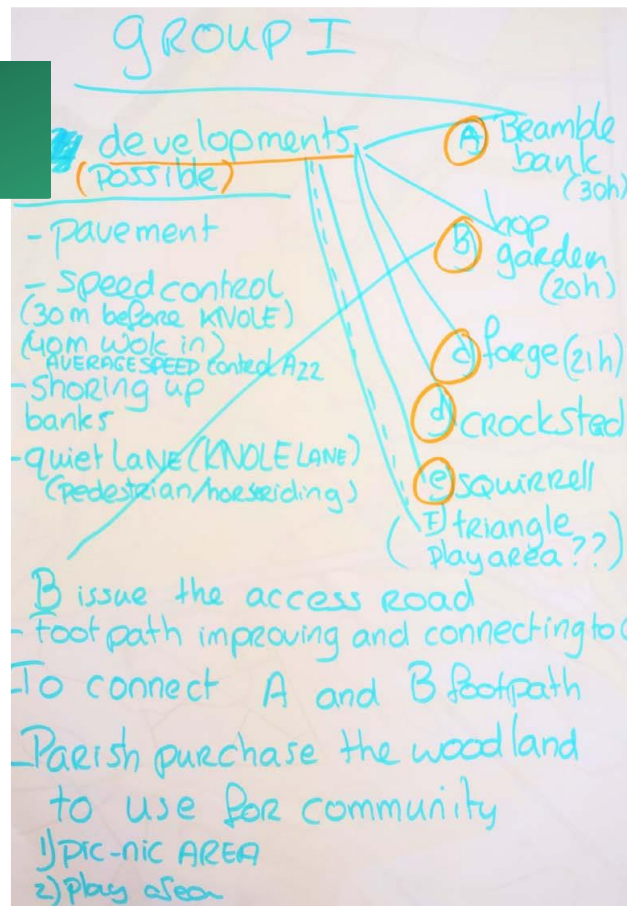 GROUP I
developments
(possible)
A Bramble
bank
(30h)
B hop
garden
(20h)
c) forge (21h)
d) CROCKSTED
e) SQUIRRELL
(F) triangle
play area ??)
- pavement
- speed control
(30 m before KNOLE)
(40m wolk in)
AVERAGE SPEED control A22
- shoring up
banks
- quiet LANE (KNOLE LANE)
(pedestrian/horseriding)
B issue the access ROAD
- foot path improving and connecting to
- To connect A and B footpath
- Parish purchase the woodland
to use for community
1) pic-nic AREA
2) play area